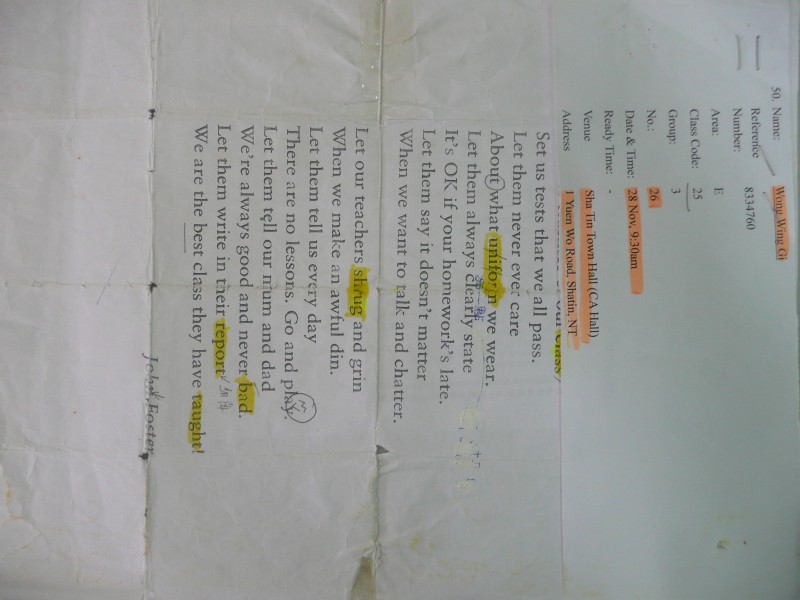 50. Name: Wong Wing Gi
Reference Number: 8334760
Area: E
Class Code: 25
Group: 3
No.: 26
Date & Time: 28 Nov, 9:30am
Ready Time: -
Venue Sha Tin Town Hall (CA Hall)
Address 1 Yuen Wo Road, Shatin, NT
class,
Set us tests that we all pass.
Let them never ever care
About what uniform we wear.
Let them always clearly state
It's OK if your homework's late.
Let them say it doesn't matter
When we want to talk and chatter.
Let our teachers shrug and grin
When we make an awful din.
Let them tell us every day
There are no lessons. Go and play.
Let them tell our mum and dad
We're always good and never bad.
Let them write in their report
We are the best class they have taught!
John Foster